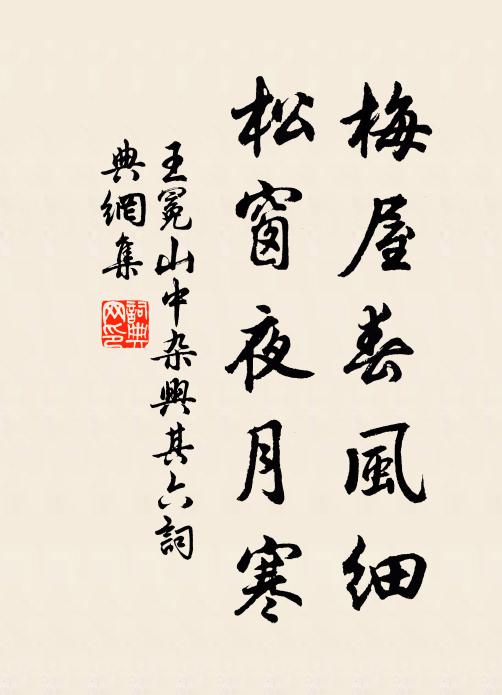 梅屋春風細
松窗夜月寒
王冕山中杂興其六詞
典網集
詞典
网印